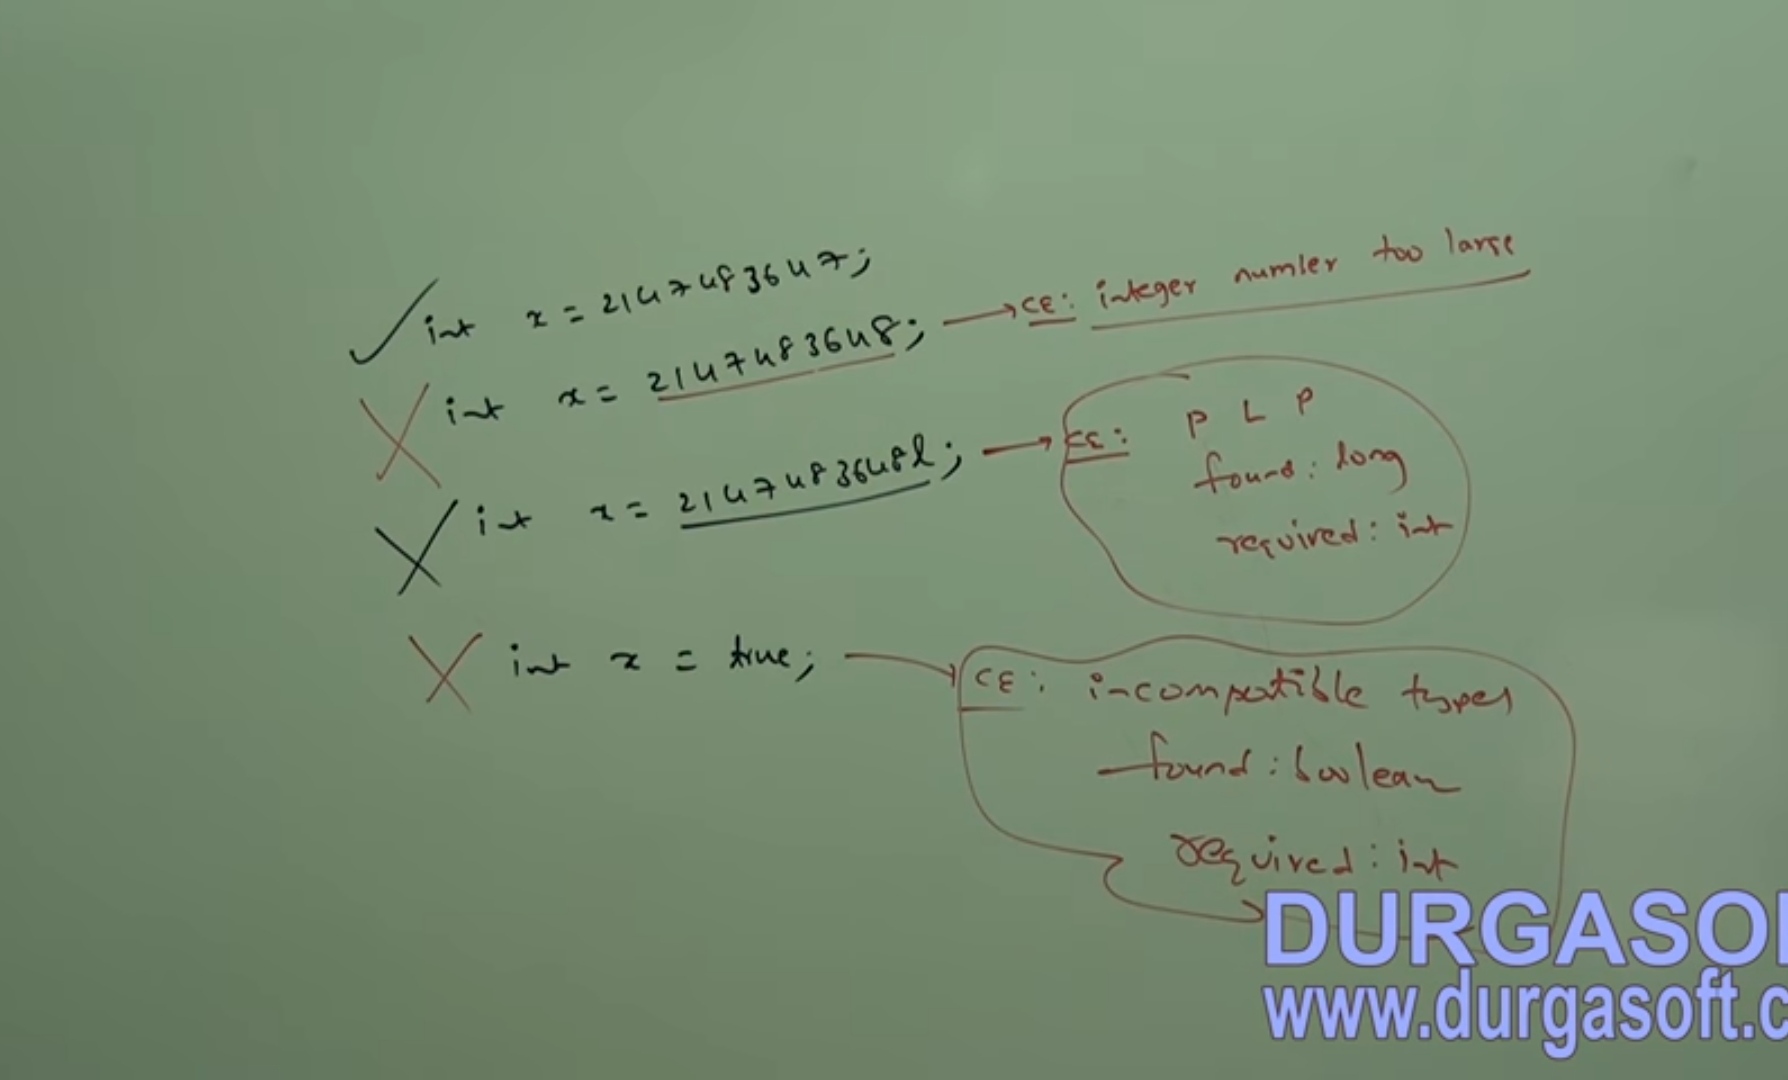 int x = 2147483647;
int x = 2147483648; → CE: integer number too large
int x = 2147483648l; → CE: P L P
found: long
required: int
int x = true; → CE: incompatible types
found: boolean
required: int
DURGASO
www.durgasoft.c